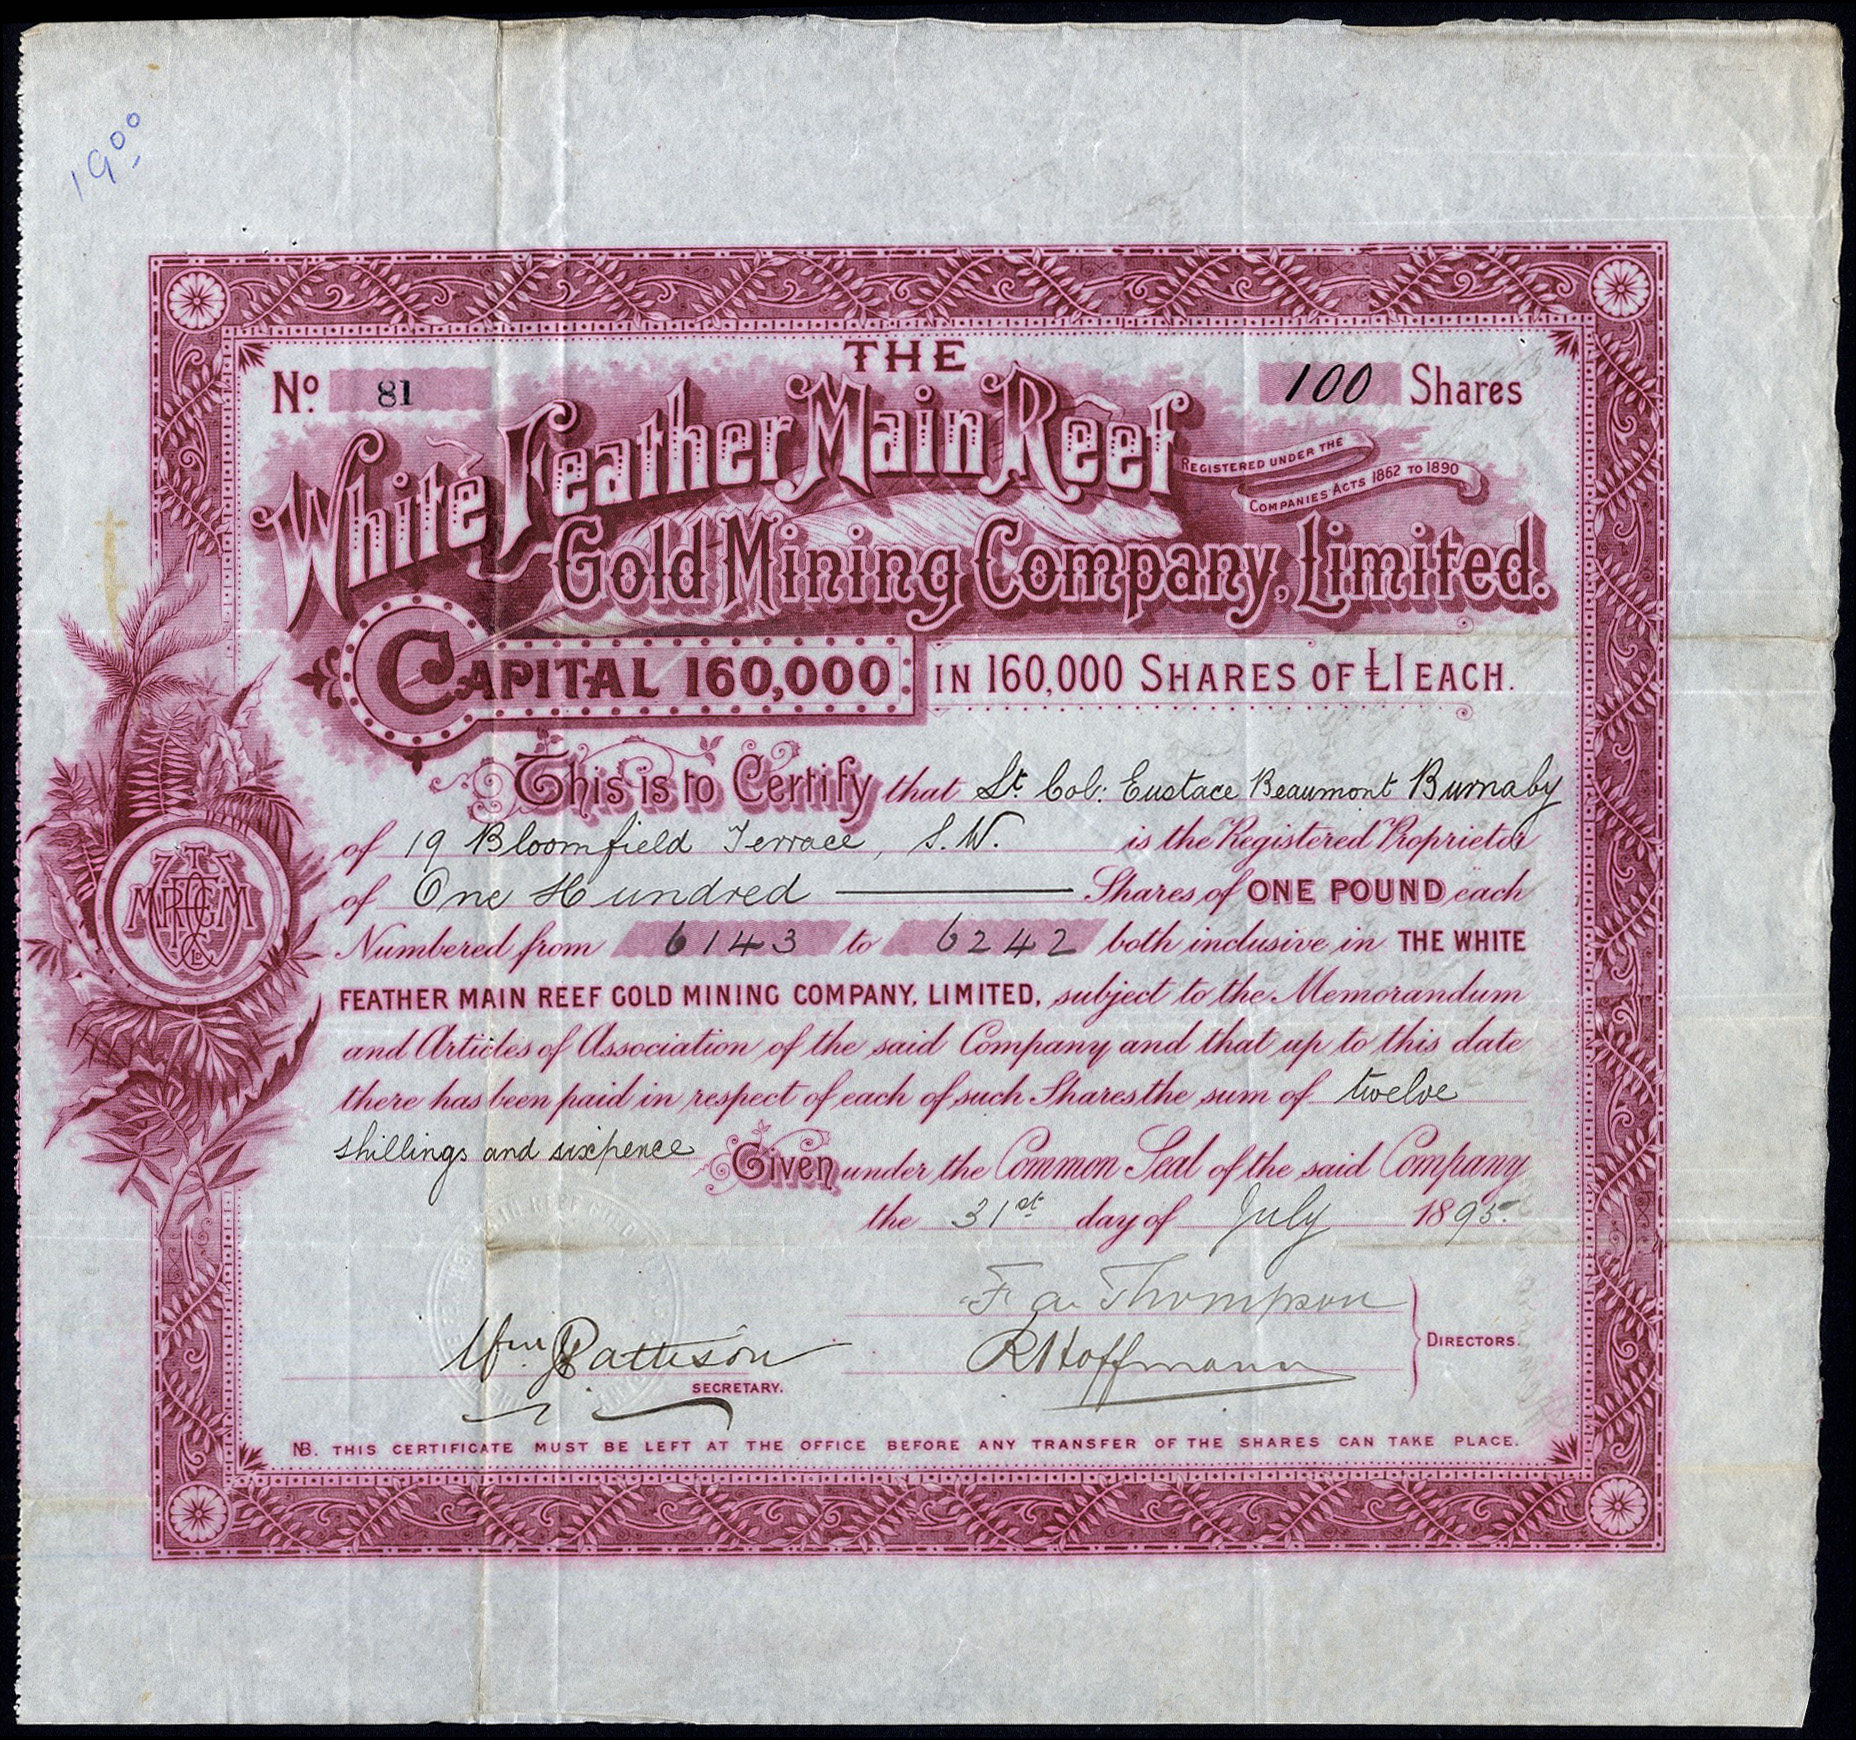 19 00
No. 81
THE
100 Shares
White Feather Main Reef
REGISTERED UNDER THE
COMPANIES ACTS 1862 TO 1890
Gold Mining Company, Limited.
CAPITAL 160,000 IN 160,000 SHARES OF £1 EACH.
This is to Certify that Lt Col: Eustace Beaumont Burnaby
of 19 Bloomfield Terrace, S.W. is the Registered Proprietor
of One Hundred Shares of ONE POUND each
Numbered from 6143 to 6242 both inclusive in THE WHITE
FEATHER MAIN REEF GOLD MINING COMPANY, LIMITED, subject to the Memorandum
and Articles of Association of the said Company and that up to this date
there has been paid in respect of each of such Shares the sum of twelve
shillings and sixpence Given under the Common Seal of the said Company
the 31st day of July 1895.
F. A. Thompson
Wm J Pattison
R Hoffmann
DIRECTORS.
SECRETARY.
NB. THIS CERTIFICATE MUST BE LEFT AT THE OFFICE BEFORE ANY TRANSFER OF THE SHARES CAN TAKE PLACE.